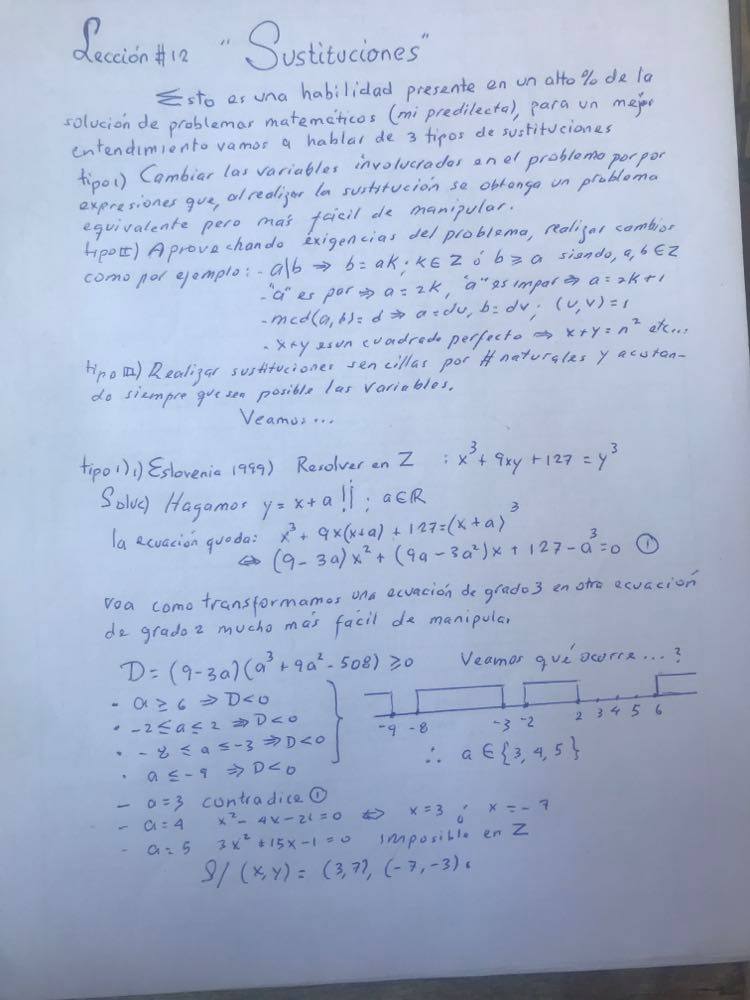 Lección #12 "Sustituciones"
Esto es una habilidad presente en un alto % de la
solución de problemas matemáticos (mi predilecta), para un mejor
entendimiento vamos a hablar de 3 tipos de sustituciones
tipo I) Cambiar las variables involucradas en el problema por por
expresiones que, al realizar la sustitución se obtenga un problema
equivalente pero más fácil de manipular.
tipo II) Aprovechando exigencias del problema, realizar cambios
como por ejemplo: - a\b ⇒ b = ak ; k ∈ Z ó b ≥ a siendo, a, b ∈ Z
- "a" es par ⇒ a = 2k, "a" es impar ⇒ a = 2k+1
- mcd(a,b) = d ⇒ a = du, b = dv ; (u,v) = 1
- x+y es un cuadrado perfecto ⇒ x+y = n² etc...
tipo III) Realizar sustituciones sencillas por # naturales y acotan-
do siempre que sea posible las variables.
Veamos...
tipo I) 1) Eslovenia 1999) Resolver en Z : x³ + 9xy + 127 = y³
Soluc) Hagamos y = x + a !! ; a ∈ R
la ecuación queda: x³ + 9x(x+a) + 127 = (x+a)³
⇔ (9 - 3a)x² + (9a - 3a²)x + 127 - a³ = 0 ①
vea como transformamos una ecuación de grado 3 en otra ecuación
de grado 2 mucho más fácil de manipular
D = (9-3a)(a³ + 9a² - 508) ≥ 0 Veamos qué ocurre...?
· a ≥ 6 ⇒ D < 0
· -2 ≤ a ≤ 2 ⇒ D < 0
· -8 ≤ a ≤ -3 ⇒ D < 0
· a ≤ -9 ⇒ D < 0
-9 -8 -3 -2 2 3 4 5 6
∴ a ∈ {3, 4, 5}
- a = 3 contradice ①
- a = 4 x² - 4x - 21 = 0 ⇔ x = 3 ó x = -7
- a = 5 3x² + 15x - 1 = 0 imposible en Z
S/ (x,y) = (3,7), (-7,-3).